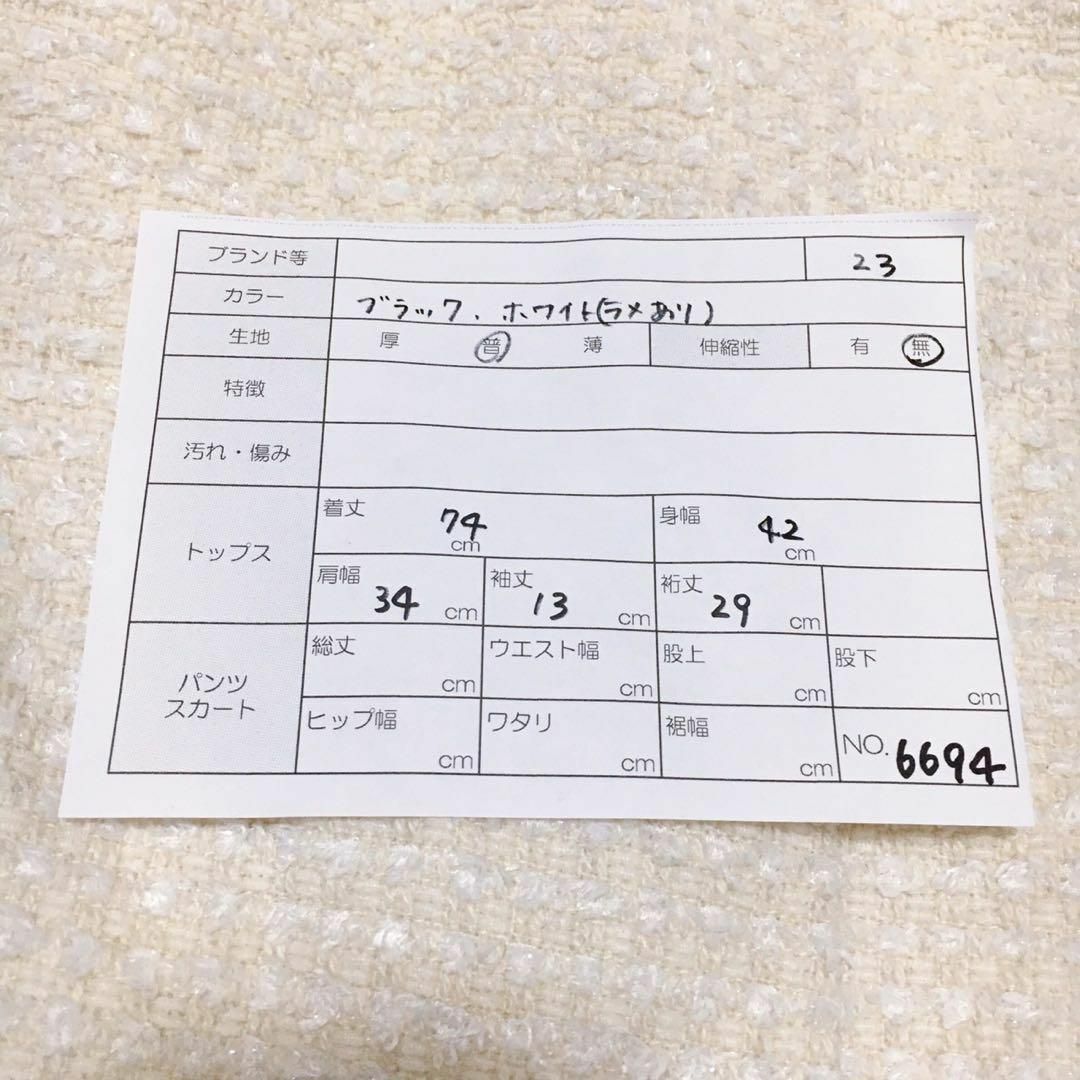 ブランド等 23
カラー ブラック、ホワイト(ラメあり)
生地 厚 普 薄 伸縮性 有 無
特徴
汚れ・傷み
トップス
着丈 74 cm 身幅 42 cm
肩幅 34 cm 袖丈 13 cm 裄丈 29 cm
パンツ
スカート
総丈 cm ウエスト幅 cm 股上 cm 股下 cm
ヒップ幅 cm ワタリ cm 裾幅 cm NO. 6694